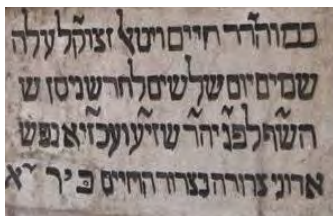 כמוהר״ר חיים ויטאל זצוק״ל עלה
שמים יום שלשים לחדש ניסן ש
הש״ף לפ״ג יה״ר שזי״ע ועכ״יא נפש
אדוני צרורה בצרור החיים